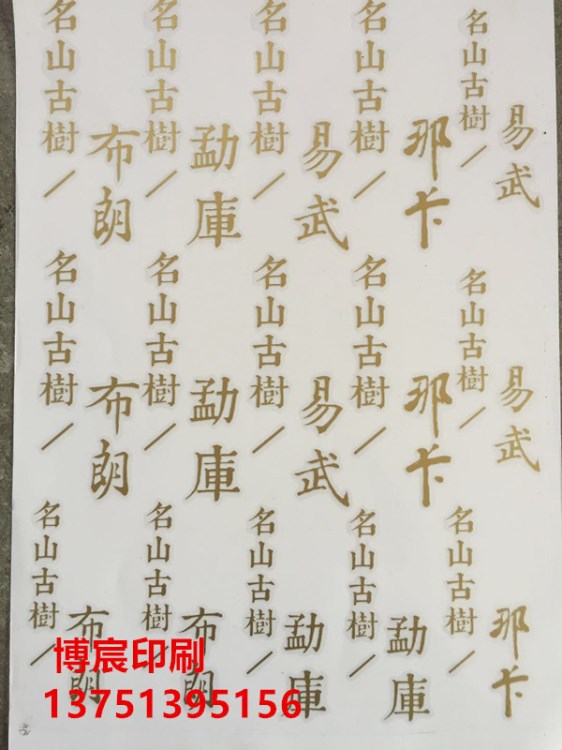 名山古樹/
布朗
名山古樹/
勐庫
名山古樹/
易武
名山古樹/
那卡
名山古樹/
易武
名山古樹/
布朗
名山古樹/
勐庫
名山古樹/
易武
名山古樹/
那卡
名山古樹/
易武
名山古樹/
布朗
名山古樹/
布朗
名山古樹/
勐庫
名山古樹/
勐庫
名山古樹/
那卡
博宸印刷
13751395156